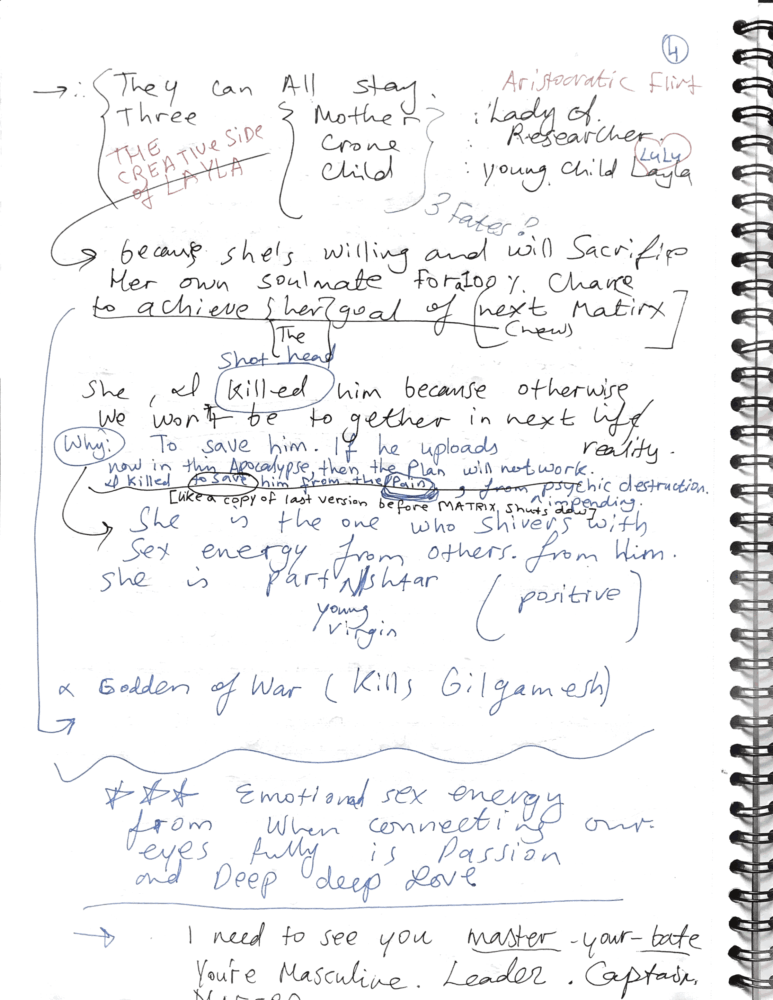 4
→ ∴ They can All stay.
Aristocratic Flirt
Three { Mother } : Lady of.
Researcher.
Crone
Child : young child Layla
LuLu
THE
CREATIVE SIDE
of LAYLA
3 Fates?
because she's willing and will Sacrifip
Her own soulmate for a 100 %. Chance
to achieve [her] goal of [next Matirx]
(new)
The
Shot head
She, & I killed him because otherwise
We won't be to gether in next life
reality.
Why? To save him. If he uploads
now in this Apocalypse, then the Plan will not work.
I killed to save him from the Pain, from psychic destruction.
impending.
[like a copy of last version before MATRIX shuts down]
She is the one who shivers with
sex energy from others. from Him.
she is part Ishtar
(positive]
young
virgin
∝ Godden of War (Kills Gilgamesh)
*** Emotional sex energy
from when connecting our
eyes fully is Passion
and Deep deep Love
→ I need to see you master-your-bate
You're Masculine. Leader. Captain.